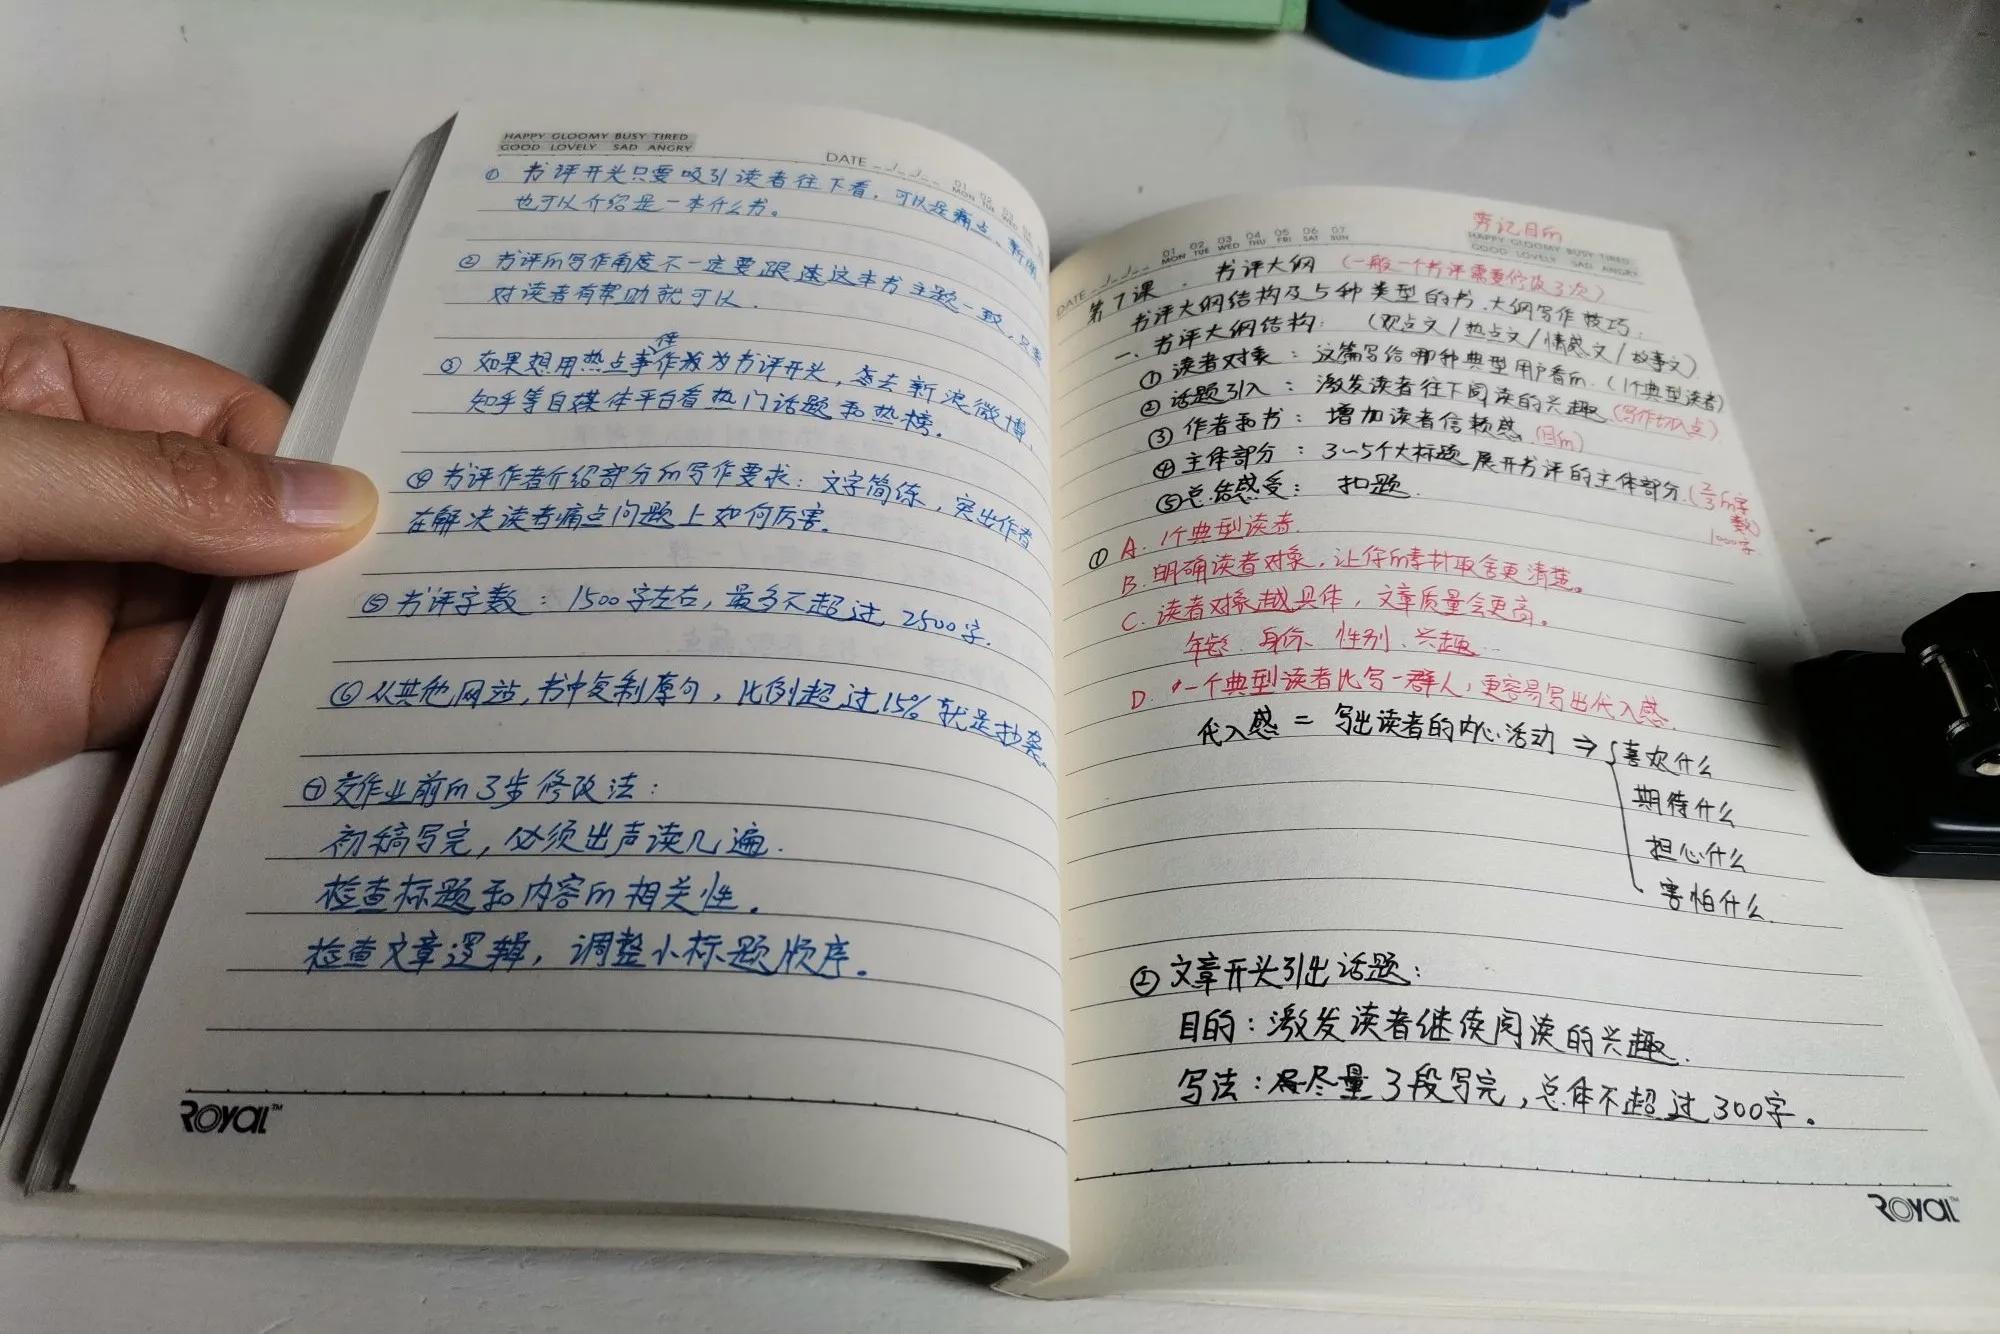 HAPPY GLOOMY BUSY TIRED
GOOD LOVELY SAD ANGRY
DATE
① 书评开头只要吸引读者往下看，可以是痛点、
也可以介绍是一本什么书。
② 书评的写作角度不一定要跟这本书主题一致，只要
对读者有帮助就可以.
③ 如果想用热点事件作为书评开头，去新浪微博，
知乎等自媒体平台看热门话题和热榜。
④ 书评作者介绍部分的写作要求：文字简练，突出作者
在解决读者痛点问题上如何厉害。
⑤ 书评字数：1500字左右，最多不超过2500字.
⑥ 从其他网站，书中复制原句，比例超过15%就是抄袭。
⑦ 交作业前的3步修改法：
初稿写完，必须出声读几遍.
检查标题和内容的相关性.
检查文章逻辑，调整小标题顺序。
ROYAL™
牢记目的
01 02 03 04 05 06 07
MON TUE WED THU FRI SAT SUN
HAPPY GLOOMY BUSY TIRED
GOOD LOVELY SAD ANGRY
DATE
第7课. 书评大纲 (一般一个书评需要修改3次)
书评大纲结构及5种类型的书.大纲写作技巧.
一、书评大纲结构: (观点文/热点文/情感文/故事文)
① 读者对象：这篇写给哪种典型用户看的.(1个典型读者)
② 话题引入：激发读者往下阅读的兴趣(写作切入点)
③ 作者和书：增加读者信赖感(目的)
④ 主体部分：3~5个大标题展开书评的主体部分.(2/3的字数)
1000字
⑤总结感受：扣题.
① A. 1个典型读者.
B. 明确读者对象，让你的素材取舍更清楚。
C. 读者对象越具体，文章质量会更高。
年龄 身份 性别、兴趣…
D. 一个典型读者比写一群人，更容易写出代入感.
代入感 = 写出读者的内心活动 ⇒ 喜欢什么
期待什么
担心什么
害怕什么.
② 文章开头引出话题：
目的：激发读者继续阅读的兴趣.
写法：尽量3段写完，总体不超过300字。
ROYAL™